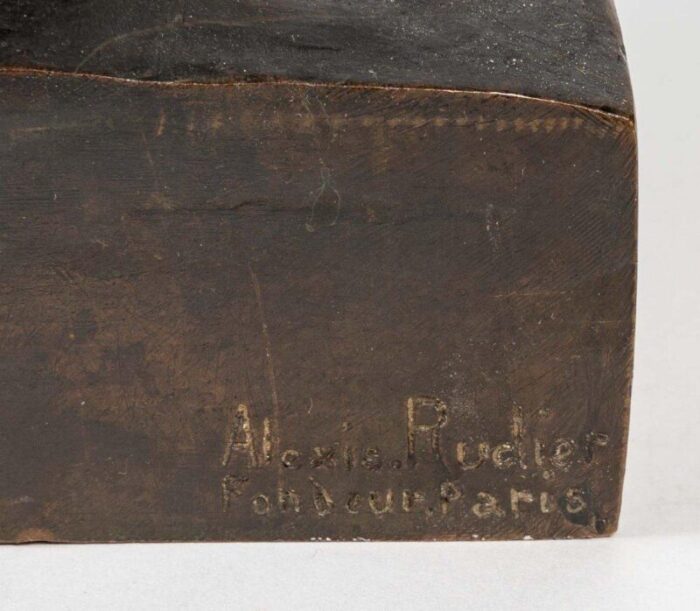 Alexis. Rudier
Fondeur. Paris.